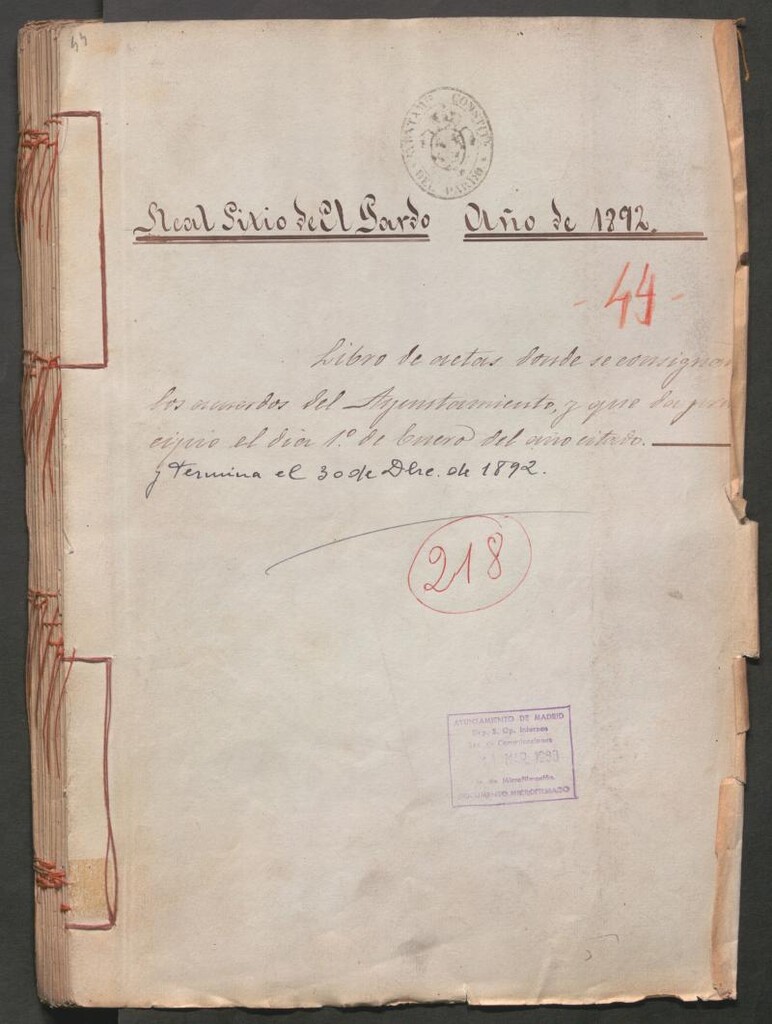 44
AYUNTAMTO CONSTITUL
DEL PARDO
Real Sitio de El Pardo Año de 1892.
- 44 -
Libro de actas donde se consignan
los acuerdos del Ayuntamiento, y que da prin
cipio el dia 1º de Enero del año citado.
y termina el 30 de Dbre. de 1892.
218
AYUNTAMIENTO DE MADRID
Op. Internas
MAR.
DOCUMENTO MICROFILMADO